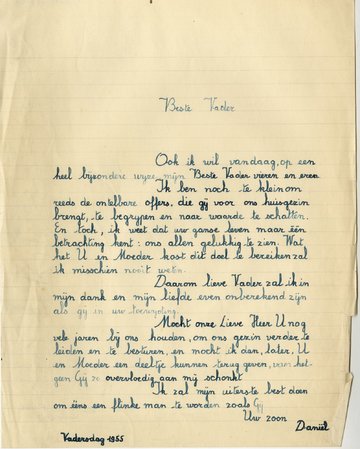 Beste Vader
Ook ik wil vandaag, op een
heel byzondere wyze, mijn Beste Vader vieren en eren
Ik ben noch te klein om
reeds de ontelbare offers, die gij voor ons huisgezin
brengt, te begrypen en naar waarde te schatten.
En toch, ik weet dat uw ganse leven maar één
betrachting kent: ons allen gelukkig te zien. Wat
het U en Moeder kost dit doel te bereiken zal
ik misschien nooit weten.
Daarom lieve Vader zal ik in
mijn dank en mijn liefde even onberekend zijn
als gij in uw toewijding.
Mocht onze Lieve Heer U nog
vele jaren bij ons houden, om ons gezin verder te
leiden en te besturen, en mocht ik dan, later, U
en Moeder een deeltje kunnen terug geven, van het-
geen Gij zo overvloedig aan mij schonkt
Ik zal mijn uiterste best doen
om ééns een flinke man te worden zoals Gij
Uw zoon
Daniël
Vadersdag 1955